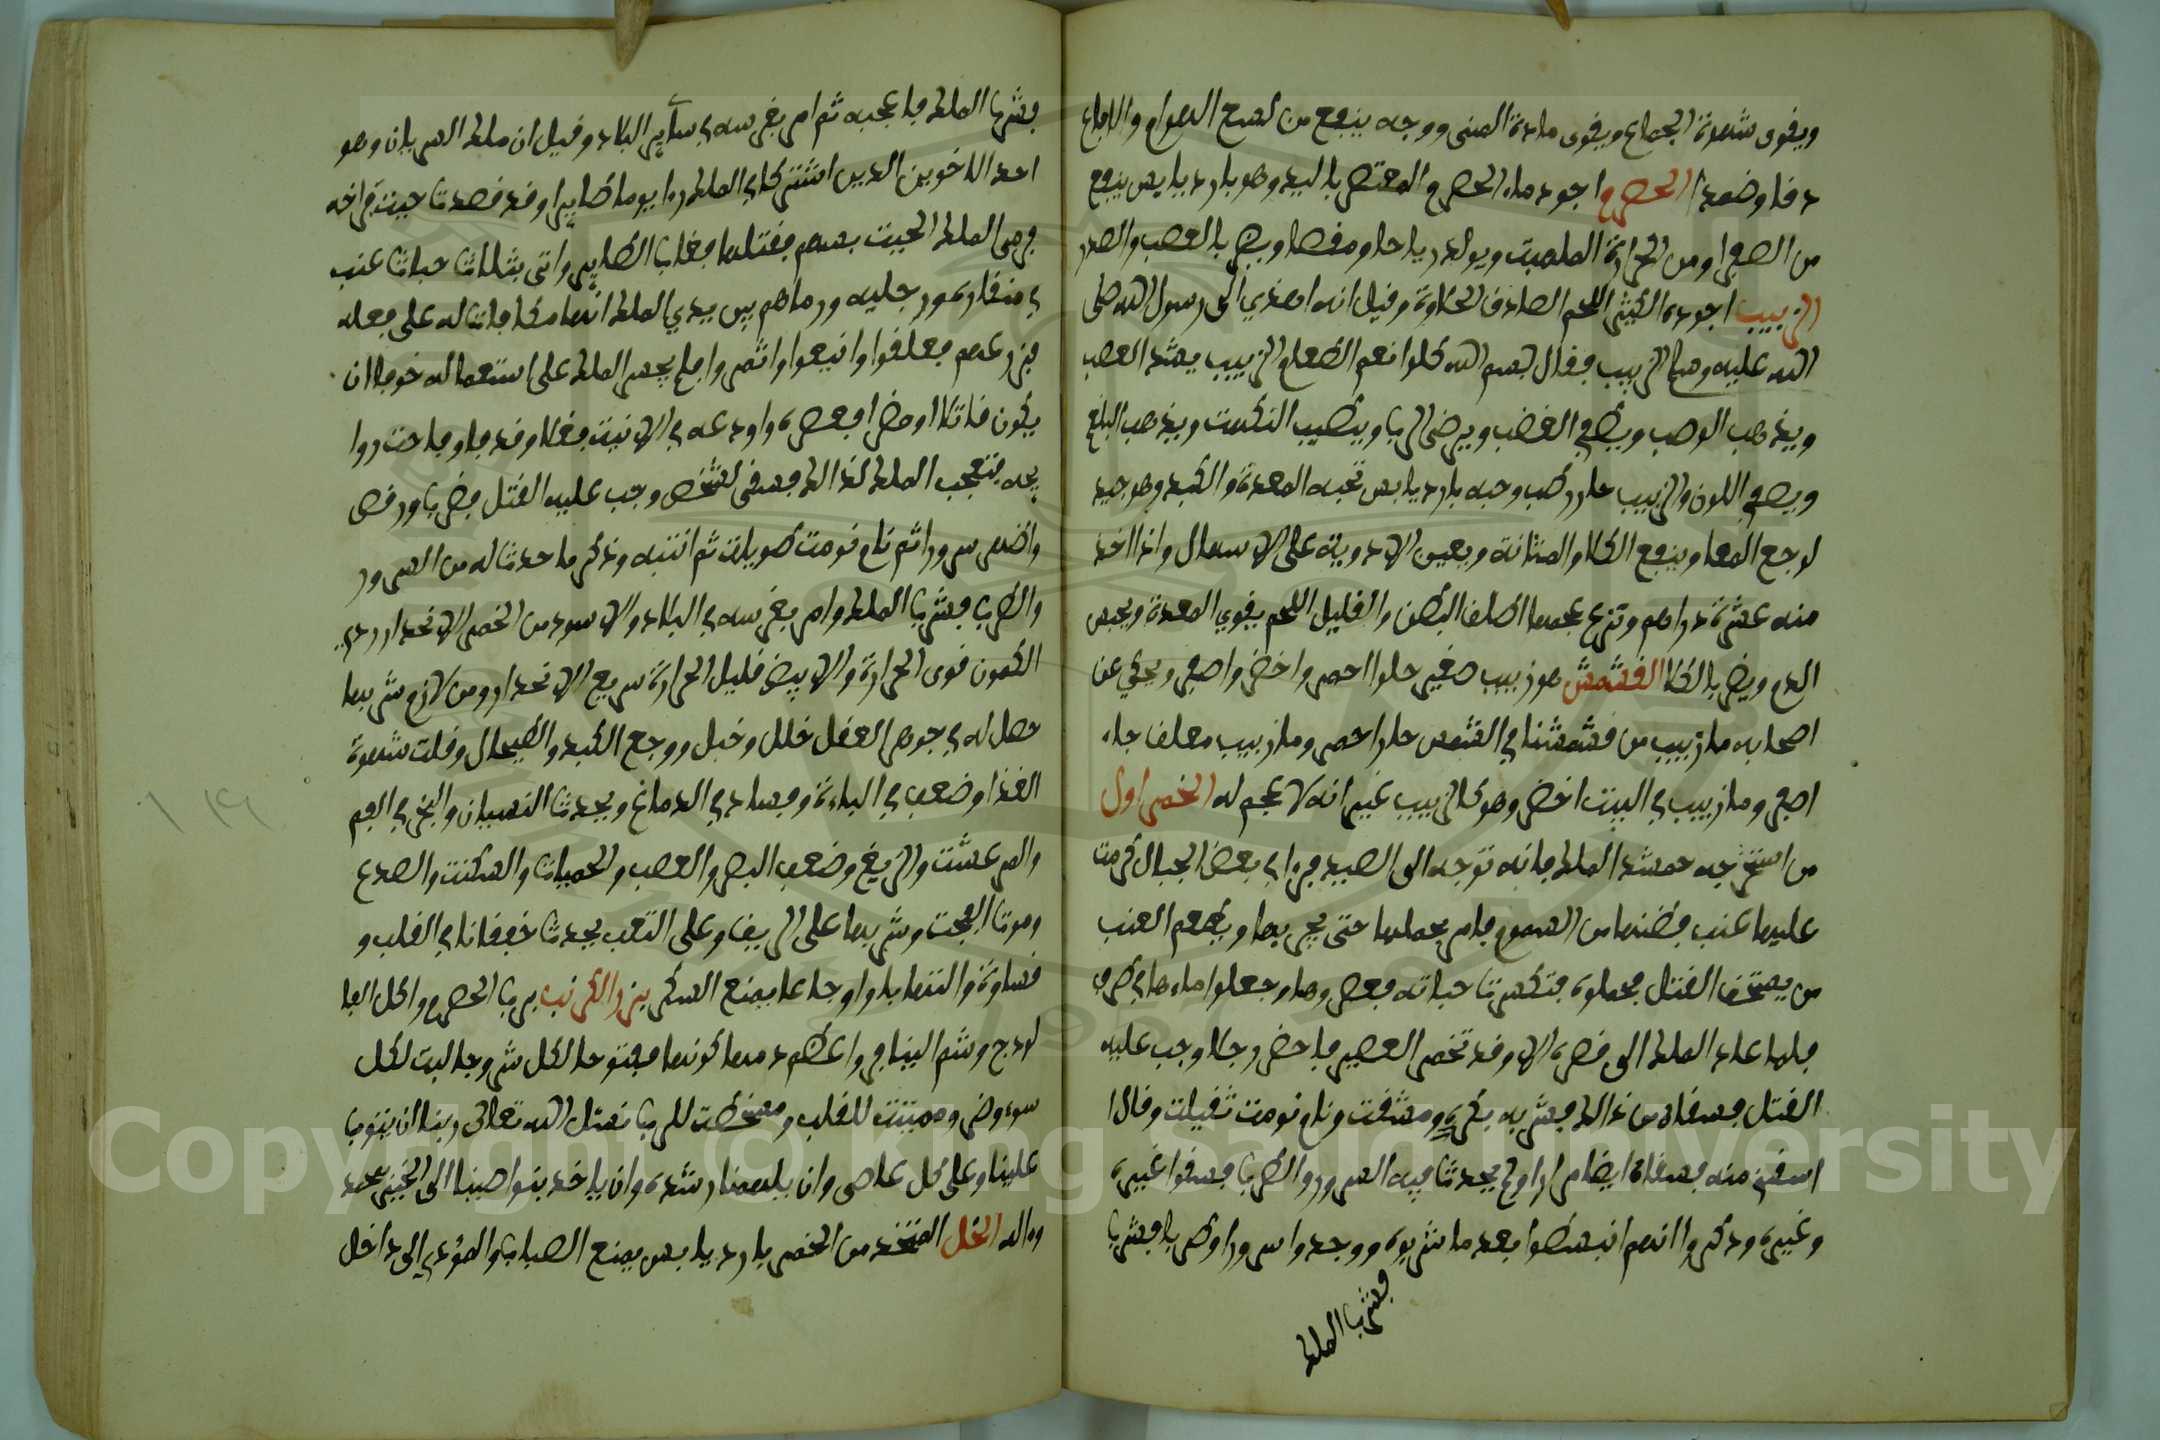 ويقوى شهوة الجماع ويقوى مادة المنى ووجه ينفع من لسع الهوام والافاع
دقا وضمدا الحصرم اجوده ماء الحصرم المعتصر باليد وهو بارد يابس ينفع
من الصفرا ومن الحرارة الملهبت ويولد رياحا ومغصا ويضر بالعصب والصدر
الزبيب اجوده الكثير اللحم الصادق الحلاوة وقيل انه اهدي الى رسول الله صلى
الله عليه وسلم الزبيب فقال بسم الله كلوا نعم الطعام الزبيب يشد العصب
ويذهب الوصب ويطفي الغضب ويرضي الرب ويطيب النكهت ويذهب البلغم
ويصفي اللون والزبيب حار رطب وحبه بارد يابس تحبه المعدة والكبد وهو جيد
لوجع المعا وينفع الكلا والمثانة ويعين الادوية على الاسهال واذا اخذ
منه عشرة دراهم ونزع عجمها اطلق البطن والقليل اللحم يقوي المعدة ويحبس
الدم ويضر بالكلا القشمش هو زبيب صغير حلوا احمر واخضر واصفر ويحكي عن
اصحابه ما زبيب من قشمشنا في الشمس حلرا حمر وما زبيب معلقا جاء
اصفر وما زبيب في البيت اخضر وهو كالزبيب غير انه لا عجم له الخمر اول
من استخرجه جمشد الملك فانه توجه الى الصيد فرءا في بعض الجبال كرمت
عليها عنب فظنها من السموم فامر بحملها حتى يجربها ويطعم العنب
من يستحق القتل فحملوه فتكسرت حباته فعصروها وجعلوا ماءها في ظرف
فلما عاد الملك الى قصره الا وقد تخمر العصير فاحضر رجلا وجب عليه
القتل فسقاه من ذالك فشربه بكره ومشقت ونام نومت ثقيلت وقال ا
اسقني منه فسقاه ايضا مرارا ولم يحدث فيه السرور والطرب فسقوا غيره
وغيره وذكروا انهم انبسطوا بعد ما شربوه ووجدوا سرورا وطربا فشرب
فشرب الملك
فشربها الملك فاعجبه ثم امر بغرسه في ساير البلاد وقيل ان ملك السريان وهو
احد الاخوين الذين اشتركا في الملك رءا يوما طايرا وقد قصدت حيت فراخه
فرمى الملك الحيت بسهم فقتلها فغاب الطاير واتى بثلاث حبات عنب
في منقاره ورجليه ورماهم بين يدي الملك انها مكافات له على فعله
فزرعهم فعلقوا واينعوا واثمروا فلم يجسر الملك على استعماله خوفا ان
يكون قاتلا او مضرا فعصره واودعه في الانيت فغلا وقذف وفاحت روا
يحه فتعجب الملك لذالك فسقى لشخص وجب عليه القتل فضرب ورقص
واظهر سرورا ثم نام نومت طويلت ثم انتبه وذكر ما حدث له من السرور
والطرب فشرب الملك وامر بغرسه في البلاد والاسود من الخمر الانحدار ردي
الكمون قوى الحرارة والابيض قليل الحرارة سريع الانحدار ومن لازم شربها
حصل له في جوهر العقل خلل وخبل ووجع الكبد والطحال وقلت شهوة
الغذا وضعف في الباءة وفساد في الدماغ ويحدث النسيان والبخر في الفم
والرعشت والزيغ وضعف البصر والعصب والحميات والسكتت والصدع
وموت الفجت وشربها على الريق وعلى التعب يحدث خفقانا في القلب و
قساوة والتهابا واوجاعا يمنع السكر بزر الكرنب برب الحصرم واكل الفا
لوذج وشم البنافر واعظم ذمها كونها مفتوحا لكل شر وجالبت لكل
سوء وضر ومميتت للقلب ومسخطت للرب نسئل الله تعالى ربنا ان يتوب
علينا وعلى كل عاص وان يلهمنا رشده وان ياخذ بنواصينا الى الخير بمحمد
وءاله الخل المتخذ من الخمر بارد يابس يمنع الصباب والمؤدي الى داخل